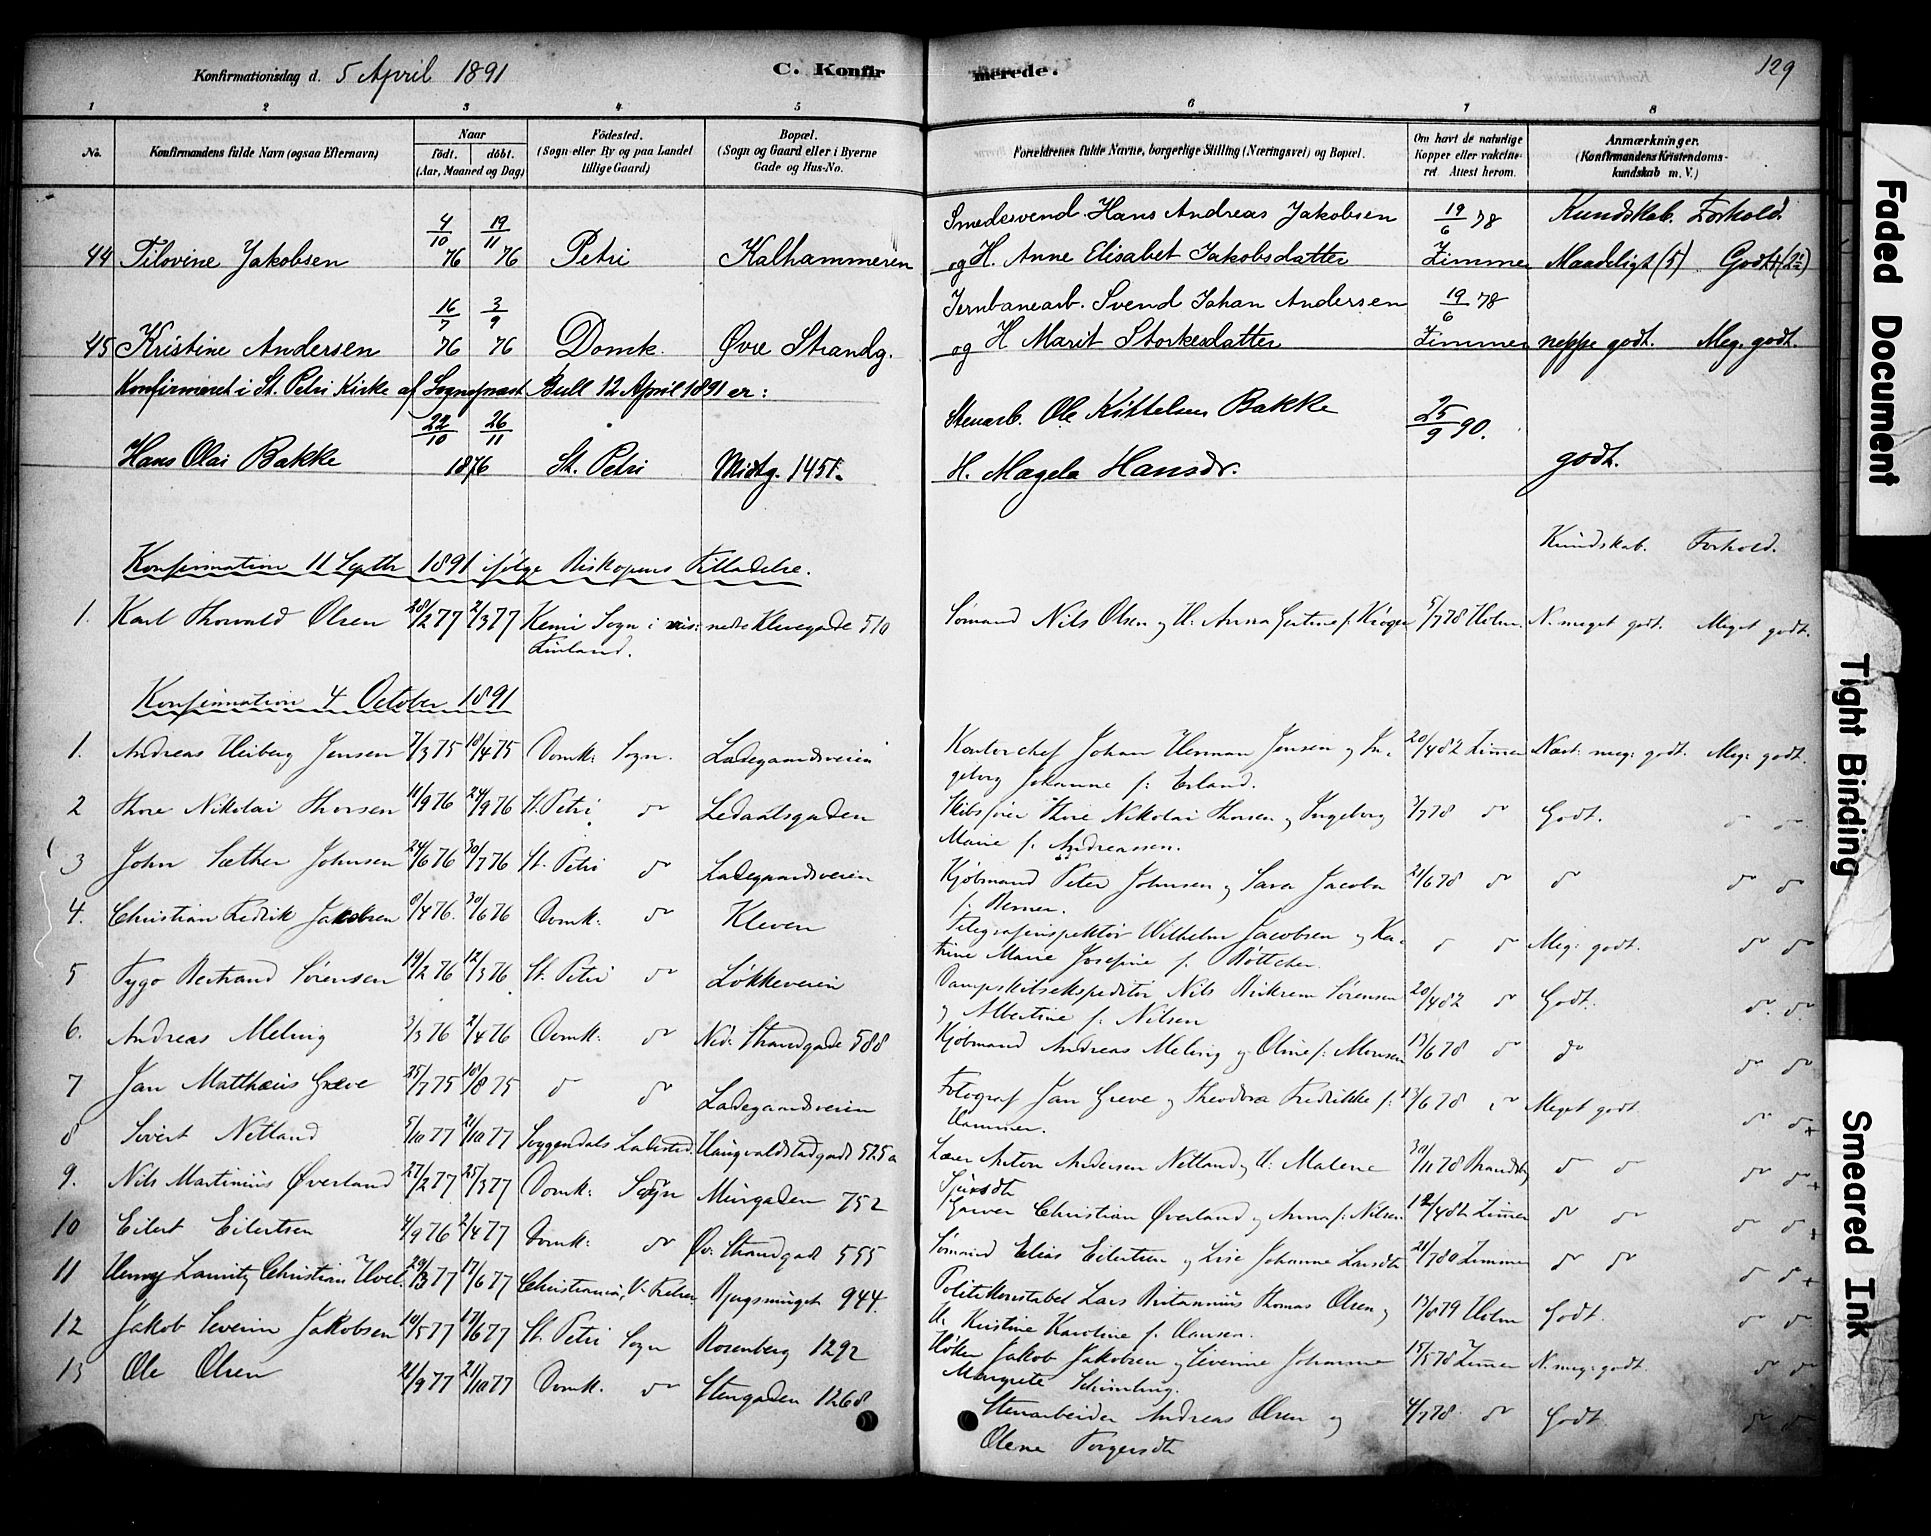 Konfirmationsdag d. 5 April 1891
C. Konfirmerede.
129
1 2 3 4 5 6 7 8
No. Konfirmandens fulde Navn (ogsaa Efternavn) Naar født. døbt. (Aar, Maaned og Dag) Fødested. (Sogn eller By og paa Landet tillige Gaard) Bopæl. (Sogn og Gaard eller i Byerne Gade og Hus-No. Forældrenes fulde Navne, borgerlige Stilling (Næringsvei) og Bopæl. Om havt de naturlige Kopper eller vakcineret. Attest herom. Anmærkninger. (Konfirmandens Kristendomskundskab m. V.)
4/10 19/11 Smedesvend Hans Andreas Jakobsen 19/6 78 Kundskab. Forhold.
44 Tilovine Jakobsen 76 76 Petri Kalhammeren og H. Anne Elisabet Jakobsdatter Zimmer Maadeligt (5) Godt
16/7 3/9 Jernbanearb. Svend Johan Andersen 19/6 78
45 Kristine Andersen 76 76 Domk. Øvre Strandg. og H. Marit Storkesdatter Zimmer neppe godt. Meg. godt.
Konfirmeret i St. Petri Kirke af Sognepræst Bull 12 April 1891 er:
22/10 26/11 Stenarb. Ole Kittelsen Bakke 25/9 90.
Hans Olai Bakke 1876 St. Petri Midtg. 1451. H. Magela Hansdr. godt.
Kundskab. Forhold.
Konfirmation 11 Septbr 1891 ifølge Biskopens Tilladelse.
1. Karl Thorvald Olsen 28/2 77 2/3 77 Kemi Sogn i nedre Klevegade 510 Sømand Nils Olsen og H. Anna f. Krøger 5/7 78 Holm. N. meget godt. Meget godt.
Finland.
Konfirmation 4 October 1891
1. Andreas Heiberg Jensen 7/3 75 18/4 75 Domk. Sogn. Ladegaardsveien Kontorchef Johan Herman Jensen og In- 20/4 82 Zimmer Næst. meg. godt. Meg. godt.
geborg Johanne f. Erland.
2 Thore Nikolai Thorsen 11/9 76 24/9 76 St. Petri do Ledaalsgaden Skibsfører Thore Nikolai Thorsen og Ingeborg 2/7 78 do Godt. do do
Marie f. Andreassen.
3 John Sæther Johnsen 24/6 76 30/7 76 St. Petri do Ladegaardsveien Kjøbmand Peter Johnsen og Sara Jacoba 21/6 78 do do do do
f. Berner.
4. Christian Fredrik Jakobsen 8/4 76. 30/6 76 Domk. do Kleven Telegrafinspektør Wilhelm Jacobsen og Ka- do do Meg. godt. do do
trine Marie Josefine f. Bøttcher.
5 Tygo Bertrand Sørensen 19/2 76 12/3 76 St. Petri do Løkkeveien Dampskibsekspeditør Nils Sørensen 20/4 82 do Godt. do. do.
og Albertine f. Nilsen
6. Andreas Meling 3/3 76 2/4 76 Domk. do Ned. Strandgade 588 Kjøbmand Andreas Meling og Oline f. Monsen 13/6 78 do do do do
7 Jan Matthæus Greve 25/7 75 10/8 75 do do Ladegaardsveien Fotograf Jan Greve og Theodora Fredrikke f. 13/6 78 do Meget godt. do do
Hammer.
8 Sivert Netland 5/10 77 21/10 77 Soggendals Ladested. Haugvaldstadgade 525 a Lærer Anton Andersen Netland og H. Malene 30/11 78 do do
9. Nils Martinius Øverland 27/2 77 25/3 77 Domk. Sogn Murgaden 752 Garver Christian Øverland og Anna f. Nilsen 12/4 82 Zimmer do do do do
10 Eilert Eilertsen 4/9 76 2/4 77 Domk. do Øv. Strandgade 555 Sømand Elias Eilertsen og Lise Johanne Larsdtr 21/7 80 Zimmer do do do do
11 Henry Lauritz Christian 29/3 77 17/6 77 Christiania, Bjergsmuget 944. Politikonstabel Lars Britannius Thomas Olsen og 13/8 79 Holm Godt. do do
H. Kristine Karoline f. Hansen.
12 Jakob Severin Jakobsen 10/5 77 17/6 77 St. Petri Sogn Rosenberg 1292 Høker Jakob Jakobsen og Severine Johanne 15/5 78 Zimmer N. meg. godt. do do
Margrete Schimling.
13 Ole Olsen 21/9 77 21/10 77 Domk. do Stengaden 1268 Stenarbeider Andreas Olsen og 4/7 78. do Godt. do do
Olene Torgersdtr
Faded Document
Tight Binding
Smeared Ink